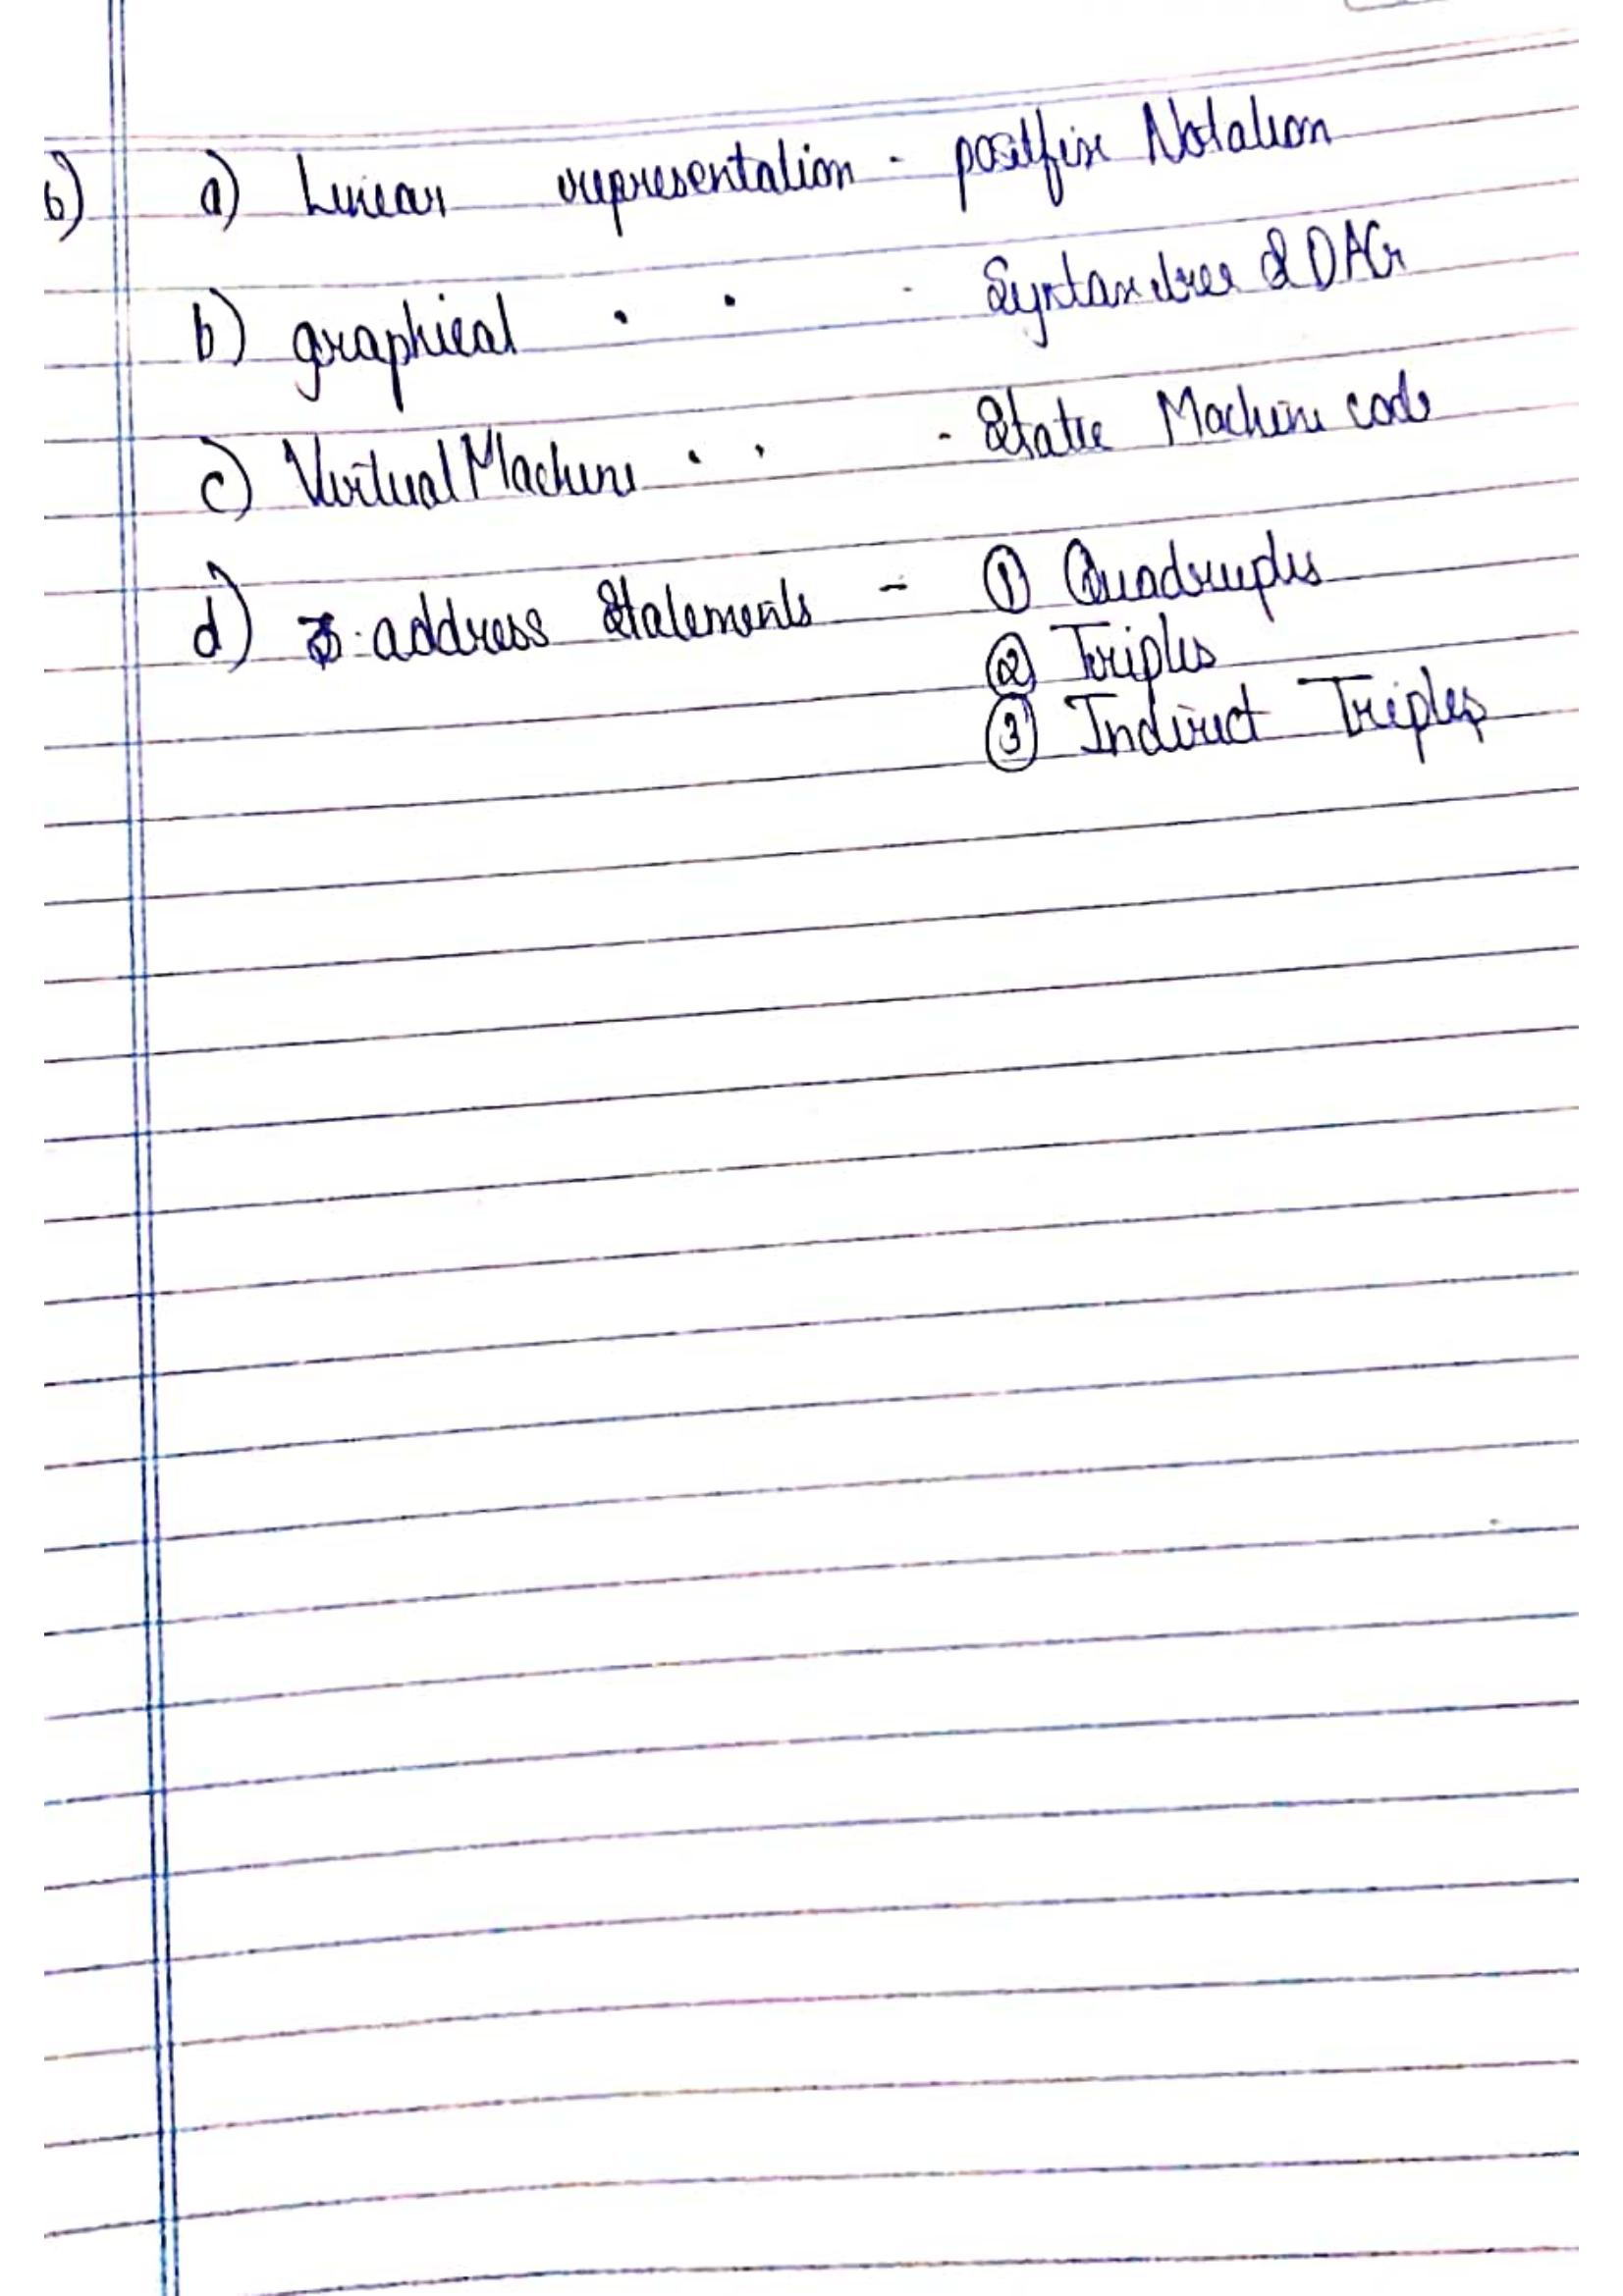 6) a) Linear representation - postfix Notation
b) graphical " " - Syntax tree & DAG
c) Virtual Machine " " - Static Machine code
d) 3-address Statements - ① Quadruples
② Triples
③ Indirect Triples